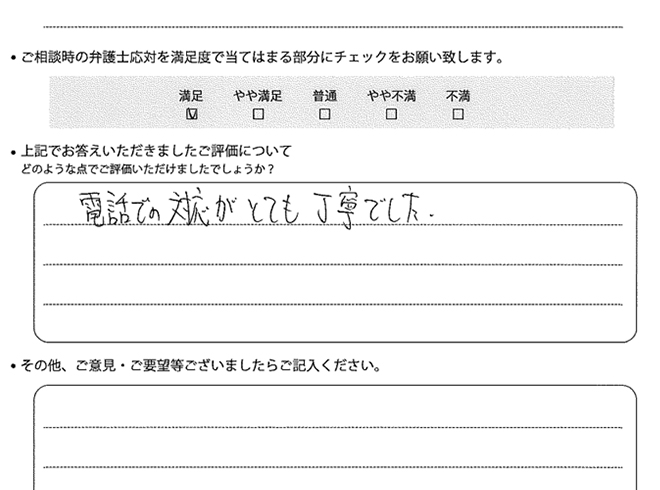 • ご相談時の弁護士応対を満足度で当てはまる部分にチェックをお願い致します。
満足 やや満足 普通 やや不満 不満
☑ ☐ ☐ ☐ ☐
• 上記でお答えいただきましたご評価について
どのような点でご評価いただけましたでしょうか？
電話での対応がとても丁寧でした.
• その他、ご意見・ご要望等ございましたらご記入ください。